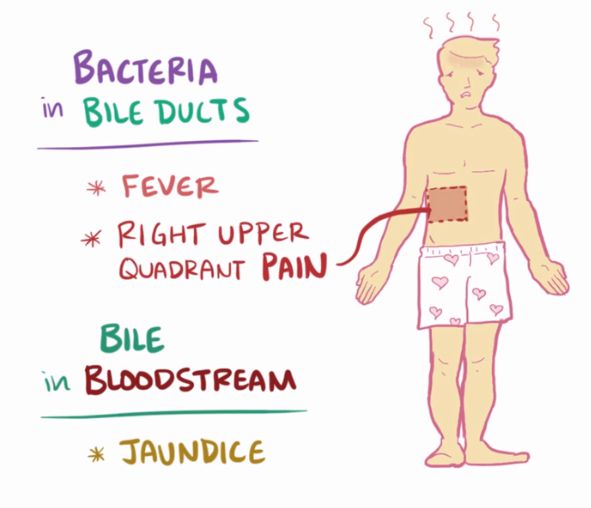 BACTERIA
in BILE DUCTS
* FEVER
* RIGHT UPPER
QUADRANT PAIN
BILE
in BLOODSTREAM
* JAUNDICE